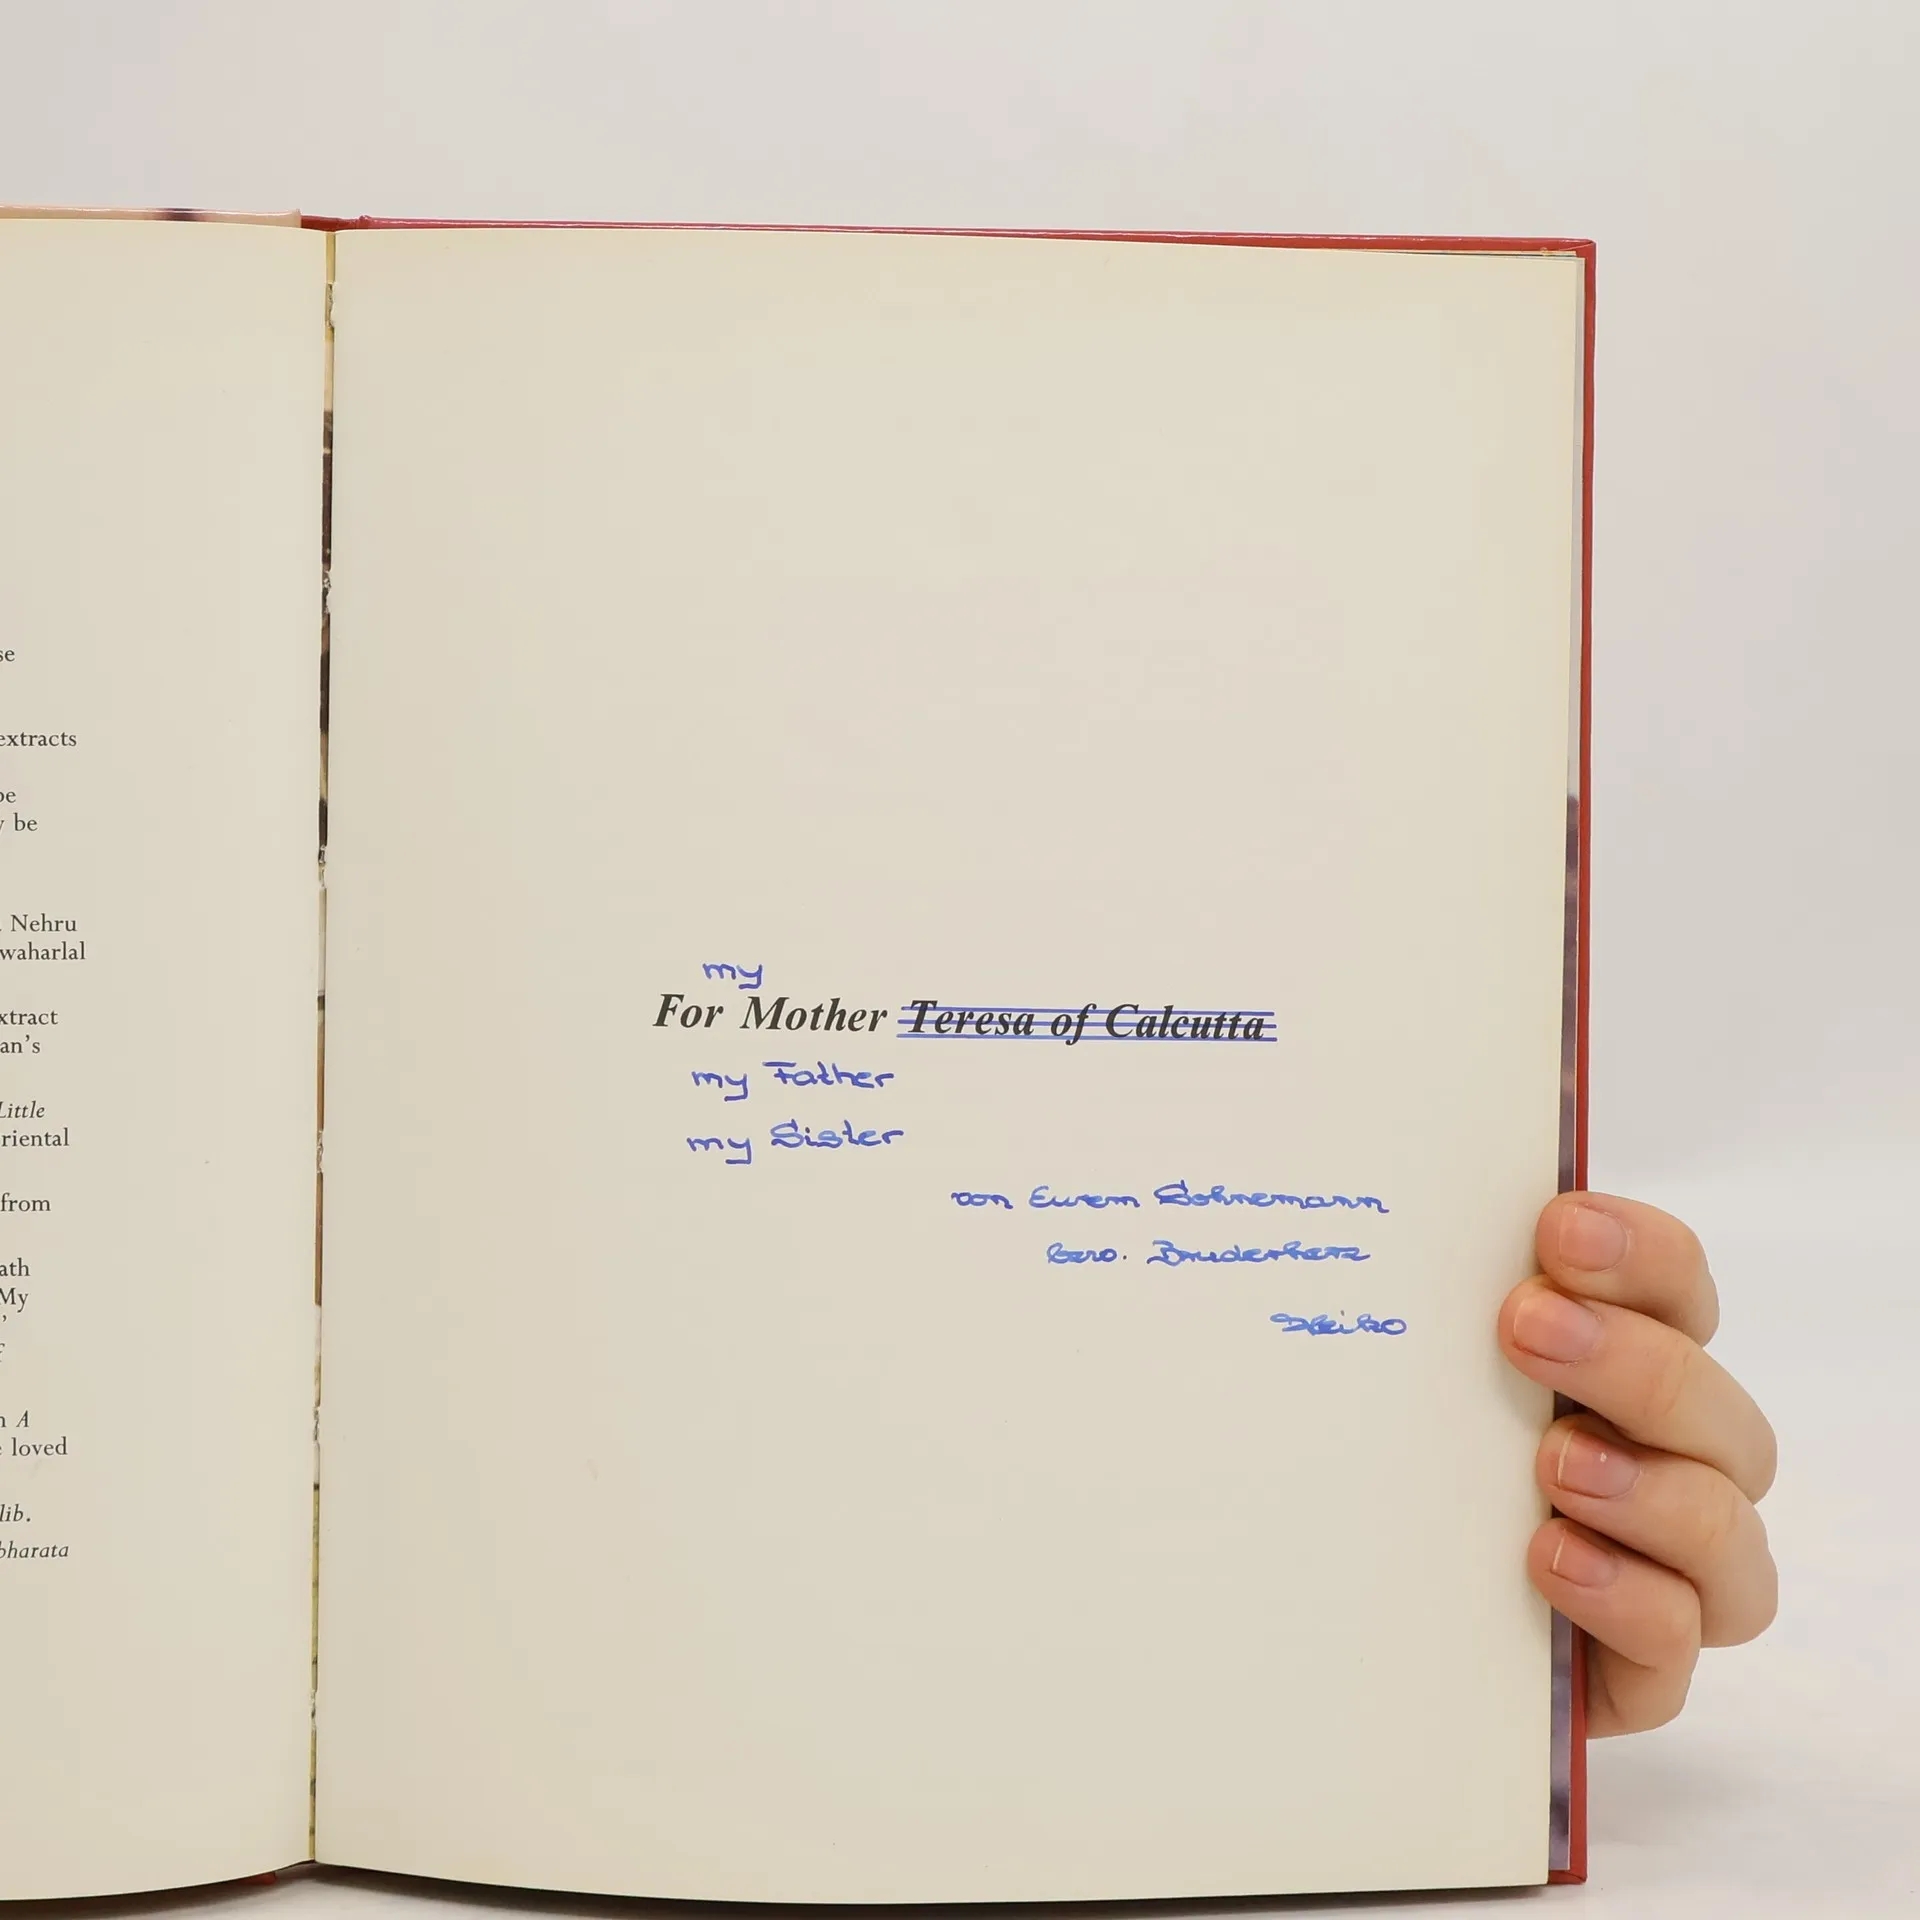 se
extracts
be
y be
. Nehru
waharlal
xtract
an's
Little
riental
from
ath
My
'
f
n A
e loved
lib.
bharata
my
For Mother Teresa of Calcutta
my Father
my Sister
von Eurem Sohnemann
bzw. Bruderherz
Heiko